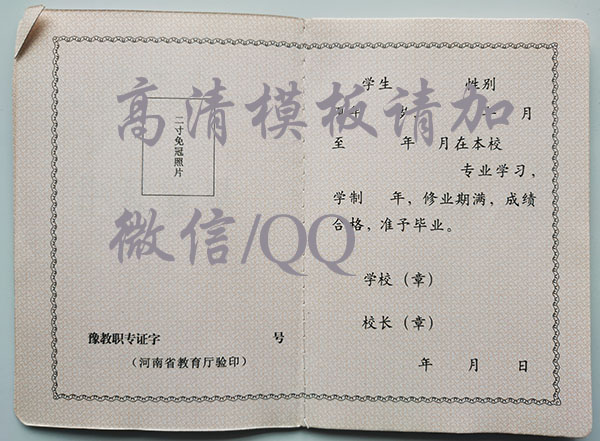 高清模板请加
微信/QQ
二寸免冠照片
豫教职专证字 号
（河南省教育厅验印）
学生 性别
年 月
至 年 月在本校
专业学习，
学制 年，修业期满，成绩
合格，准予毕业。
学校（章）
校长（章）
年 月 日